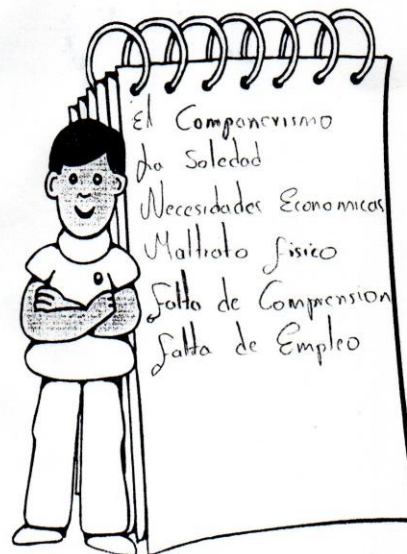 El Companerismo
La Soledad
Necesidades Economicas
Maltrato fisico
falta de Comprension
falta de Empleo